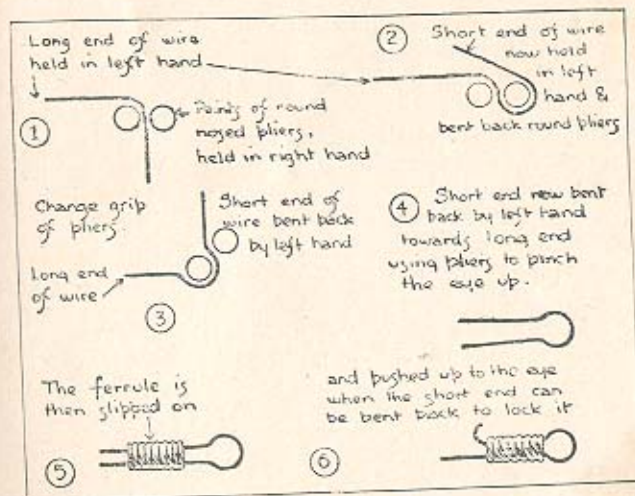 Long end of wire
held in left hand
①
Points of round
nosed pliers,
held in right hand
②
Short end of wire
now held
in left
hand &
bent back round pliers
Change grip
of pliers.
Short end of
wire bent back
by left hand
Long end
of wire
③
④
Short end now bent
back by left hand
towards long end
using pliers to pinch
the eye up.
The ferrule is
then slipped on
⑤
and pushed up to the eye
when the short end can
be bent back to lock it
⑥